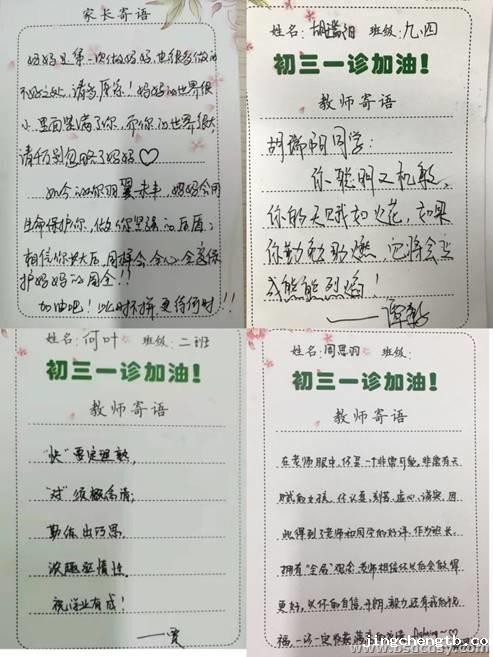 家长寄语
妈妈是第一次做妈妈,也很多做的
不好之处,请多原谅!妈妈的世界很
小,里面装满了你,而你的世界很大,
请千万别忽略了妈妈♡
如今的你羽翼未丰,妈妈会用
生命保护你,做你坚强的后盾;
相信你长大后,同样会全心全意保
护妈妈的周全!!
加油吧!此时不拼更待何时!!
姓名: 胡瑞阳 班级: 九.四
初三一诊加油!
教师寄语
胡瑞阳同学:
你聪明又机敏,
你的天赋如火花,如果
你勤奋助燃,它将会变
成熊熊烈焰!
姓名: 何叶 班级: 二班
初三一诊加油!
教师寄语
"快"要定理熟,
"对"须概念清;
勤练出巧思,
浓趣至情性。
祝学业有成!
姓名: 周思羽 班级:
初三一诊加油!
教师寄语
在老师眼中,你是一个非常可爱,非常有天
赋的女孩。你认真、刻苦、虚心、诚实,因
此得到了老师和同学的好评。作为班长,
拥有"全局"观念,老师相信你以后会做得
更好,以你的自信、开朗、毅力还有我的祝
福,一诊一定
jingchengtb.co